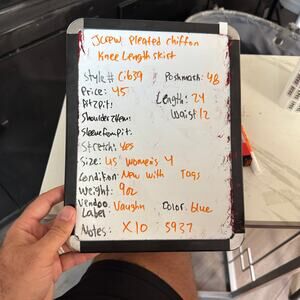 JCrew Pleated chiffon
Knee Length skirt
Style# Ci639 Poshmark: 48
Price: 45
Pit2Pit: Length: 24
Shoulder2Hem: Waist 12
SleeveFromPit:
Stretch: Yes
Size: US Women's 4
Condition: New with Tags
Weight: 9oz
Vendoo Label: Vaughn Color: blue
Notes: X10 5937